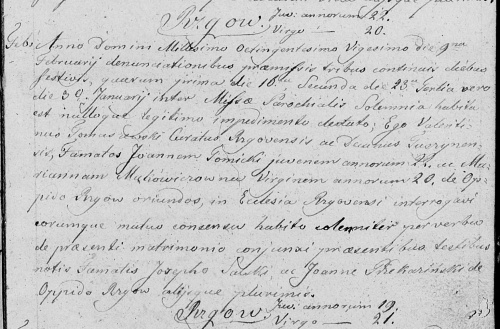 Rzgow. Juv: annorum 22.
Virgo 20.
Febr: Anno Domini Millesimo Octingentesimo Vigesimo die 9na
Februarij denunciationibus præmissis tribus continuis diebus
festivis, quarum prima die 16ta Secunda die 23a Tertia vero
die 30. Januarij inter Missæ Parochialis Solemnia habita
est nulloque legitimo impedimento detecto; Ego
Curatus Rzgoviensis ac
Famatos Joannem Tomicki juvenem annorum 22. ac Ma-
riannam Virginem annorum 20, de Op-
pido Rzgow oriundos, in Ecclesia Rzgoviensi interrogavi
eorumque mutuo consensu habito solemniter per verba
de præsenti matrimonio conjunxi præsentibus testibus
notis Famatis Josepho ac Joanne de
Oppido Rzgow alijsque plurimis.
Rzgow. Juv: annorum 19.
Virgo 21.